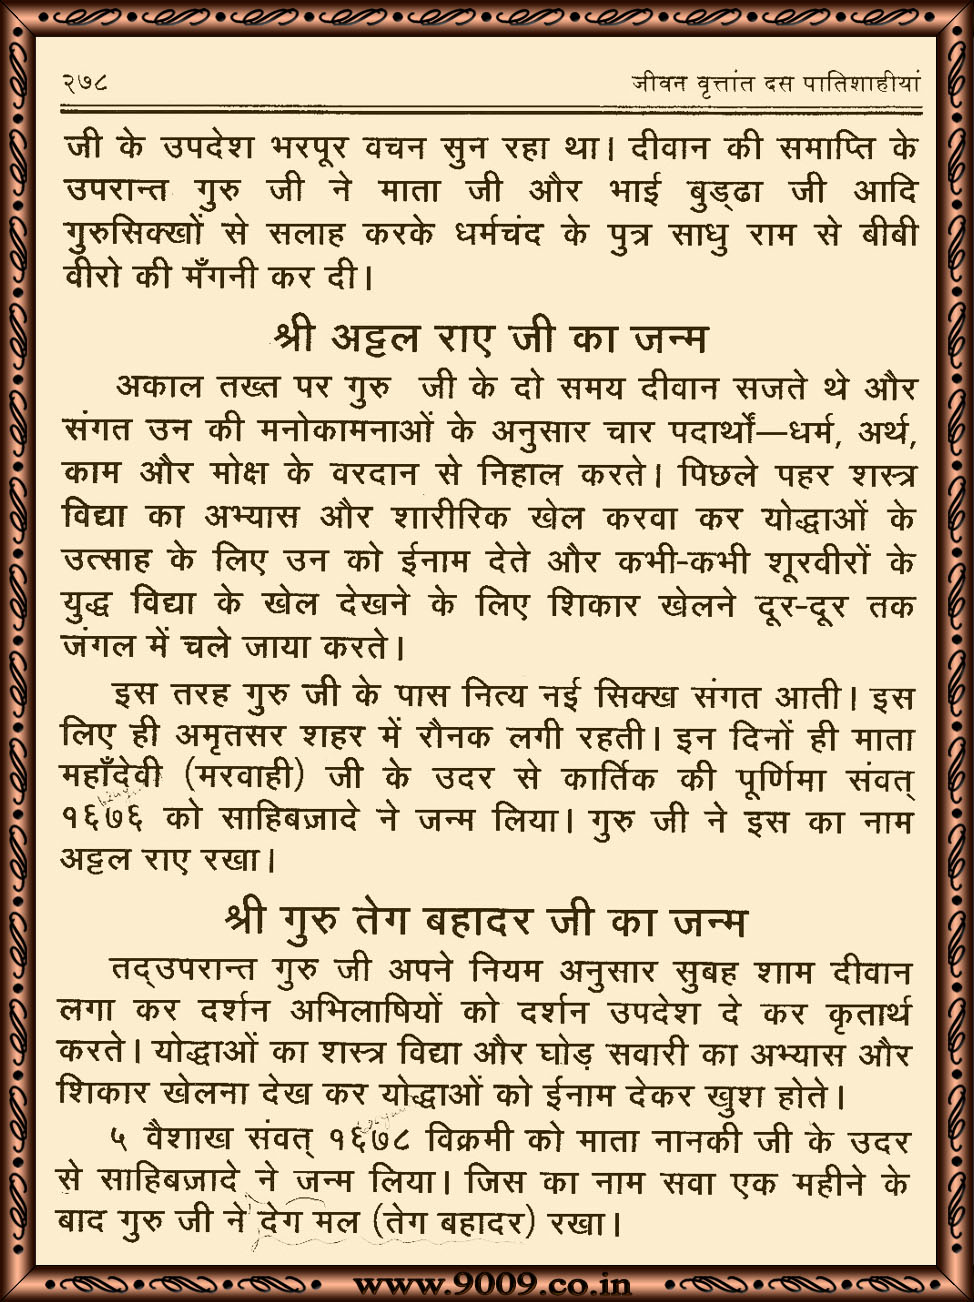 २७८ जीवन वृत्तांत दस पातिशाहीयां
जी के उपदेश भरपूर वचन सुन रहा था। दीवान की समाप्ति के
उपरान्त गुरु जी ने माता जी और भाई बुड्ढा जी आदि
गुरुसिक्खों से सलाह करके धर्मचंद के पुत्र साधु राम से बीबी
वीरो की मँगनी कर दी।
श्री अट्टल राए जी का जन्म
अकाल तख्त पर गुरु जी के दो समय दीवान सजते थे और
संगत उन की मनोकामनाओं के अनुसार चार पदार्थों—धर्म, अर्थ,
काम और मोक्ष के वरदान से निहाल करते। पिछले पहर शस्त्र
विद्या का अभ्यास और शारीरिक खेल करवा कर योद्धाओं के
उत्साह के लिए उन को ईनाम देते और कभी-कभी शूरवीरों के
युद्ध विद्या के खेल देखने के लिए शिकार खेलने दूर-दूर तक
जंगल में चले जाया करते।
इस तरह गुरु जी के पास नित्य नई सिक्ख संगत आती। इस
लिए ही अमृतसर शहर में रौनक लगी रहती। इन दिनों ही माता
महाँदेवी (मरवाही) जी के उदर से कार्तिक की पूर्णिमा संवत्
१६७६ को साहिबज़ादे ने जन्म लिया। गुरु जी ने इस का नाम
अट्टल राए रखा।
श्री गुरु तेग बहादर जी का जन्म
तद्उपरान्त गुरु जी अपने नियम अनुसार सुबह शाम दीवान
लगा कर दर्शन अभिलाषियों को दर्शन उपदेश दे कर कृतार्थ
करते। योद्धाओं का शस्त्र विद्या और घोड़ सवारी का अभ्यास और
शिकार खेलना देख कर योद्धाओं को ईनाम देकर खुश होते।
५ वैशाख संवत् १६७८ विक्रमी को माता नानकी जी के उदर
से साहिबज़ादे ने जन्म लिया। जिस का नाम सवा एक महीने के
बाद गुरु जी ने देग मल (तेग बहादर) रखा।
www.9009.co.in